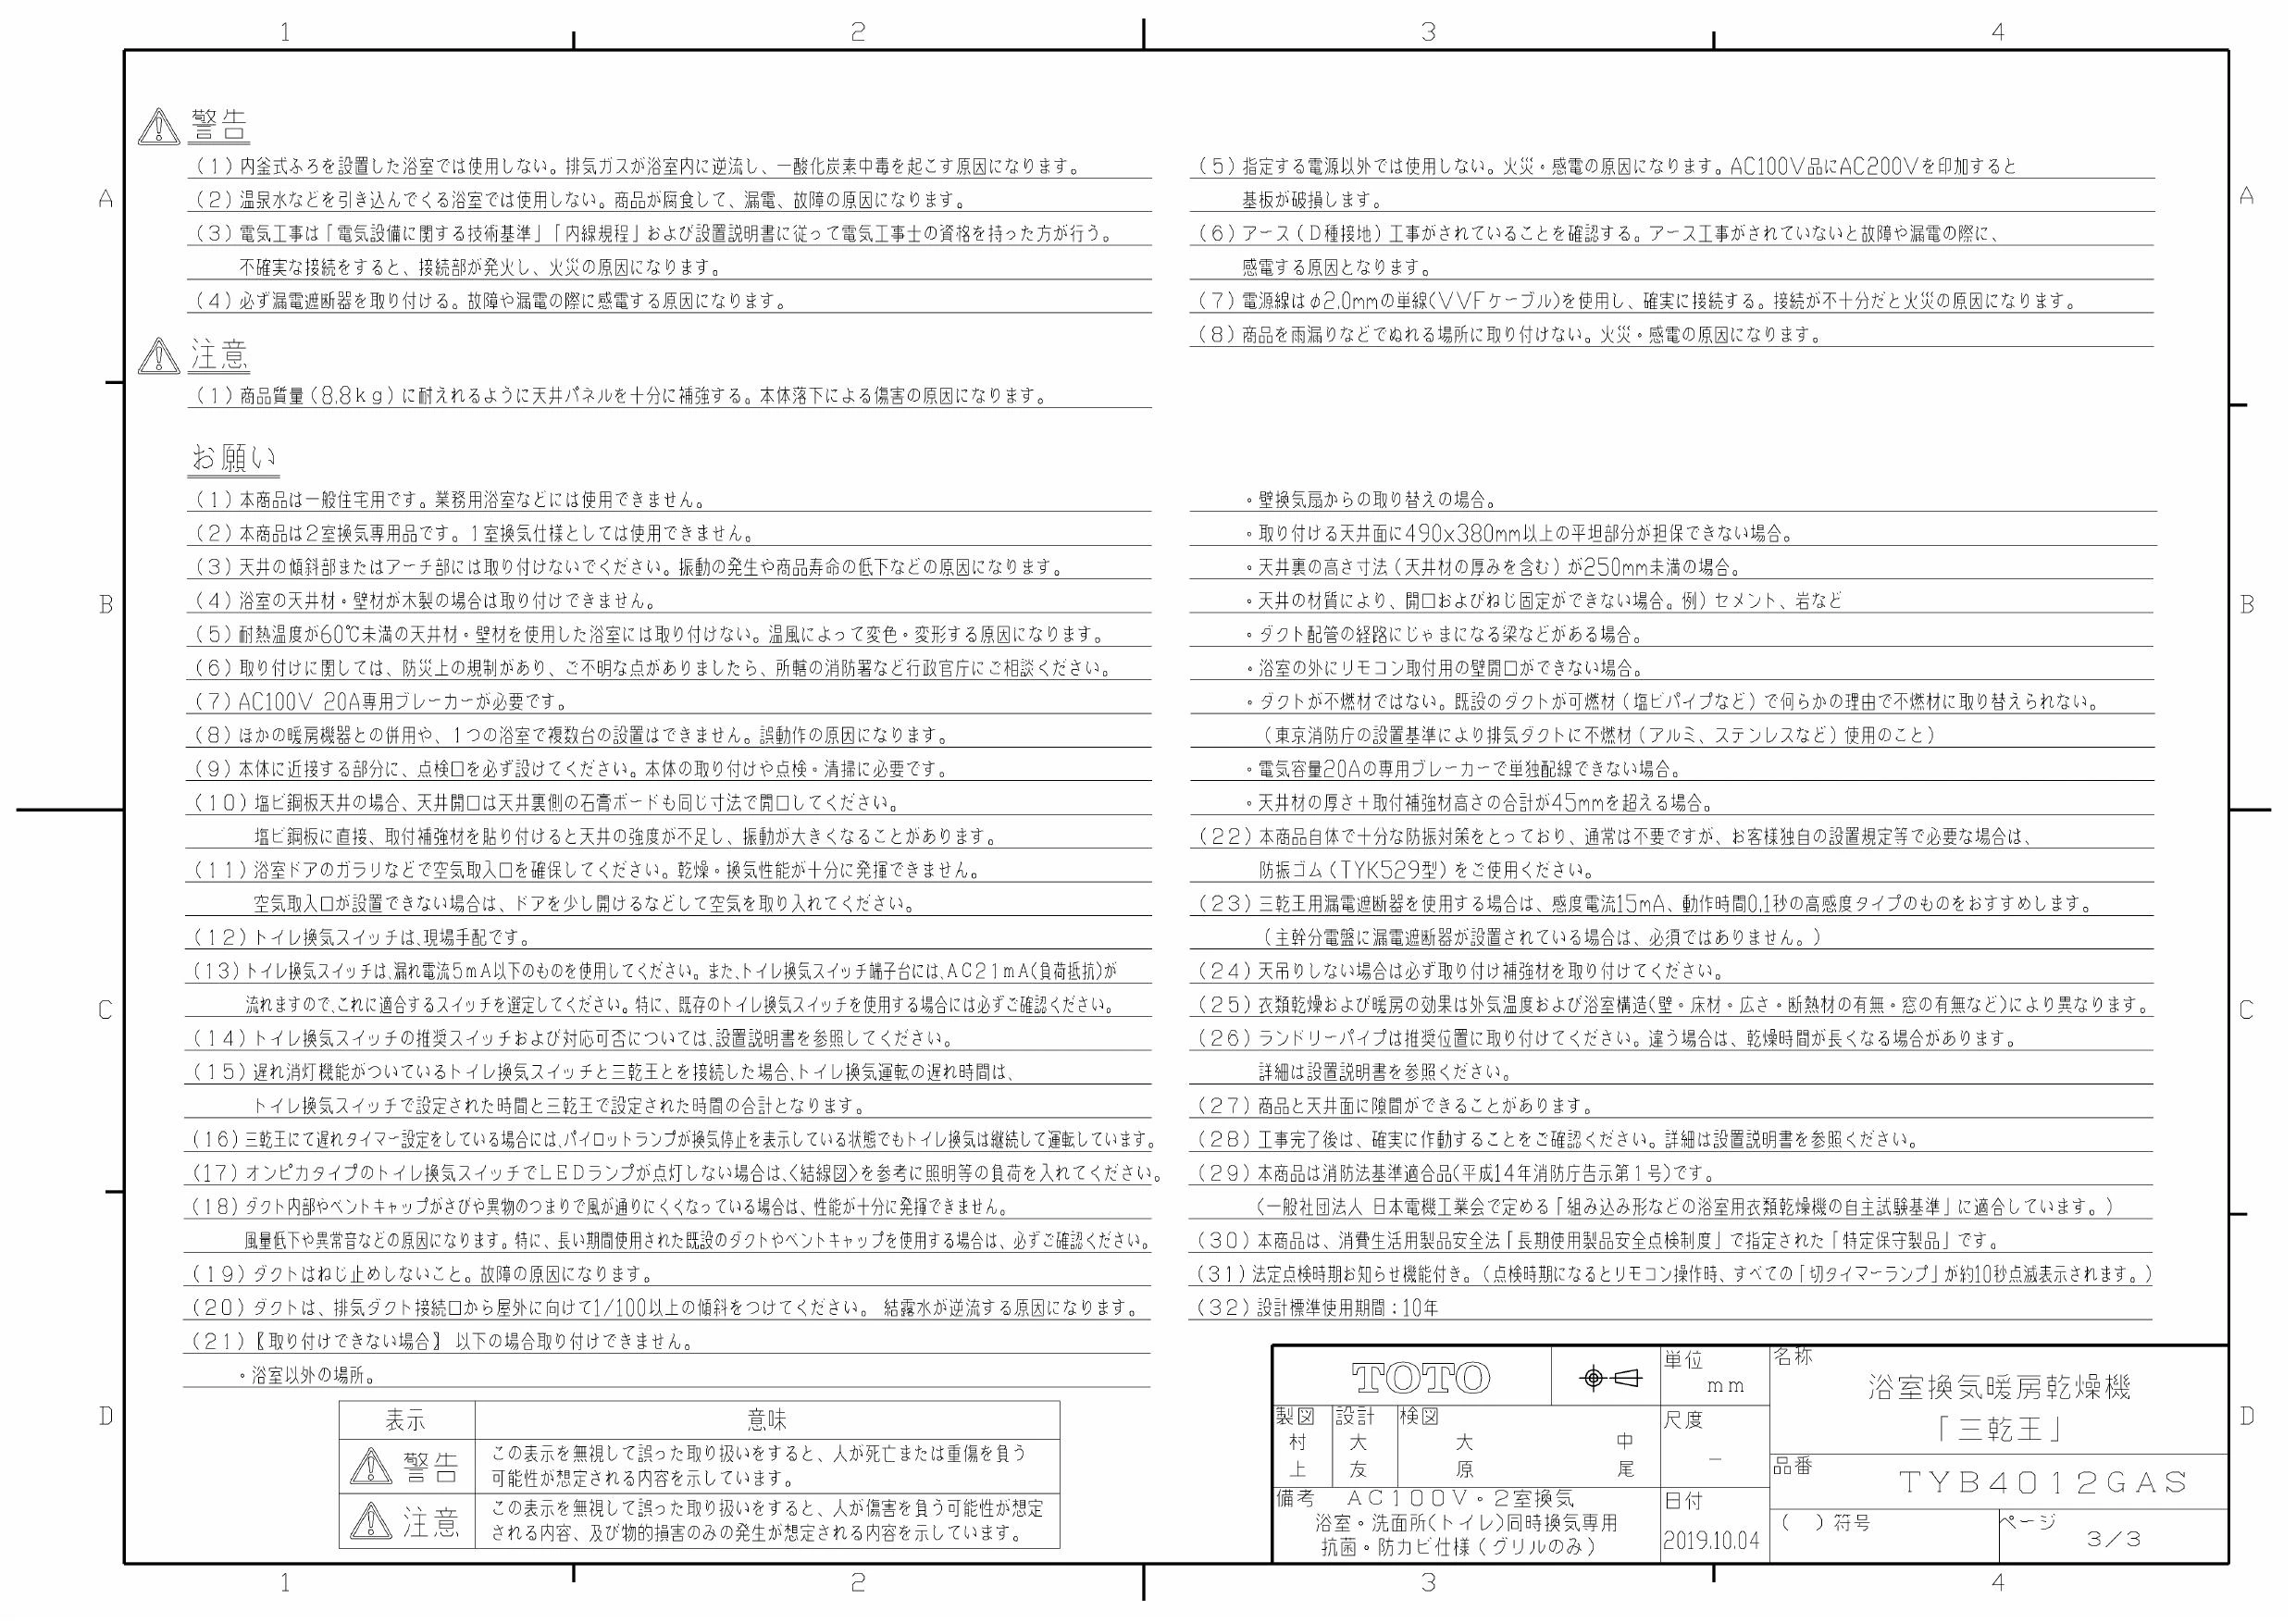 1 2 3 4
A
B
C
D
警告
（１）内釜式ふろを設置した浴室では使用しない。排気ガスが浴室内に逆流し、一酸化炭素中毒を起こす原因になります。
（２）温泉水などを引き込んでくる浴室では使用しない。商品が腐食して、漏電、故障の原因になります。
（３）電気工事は「電気設備に関する技術基準」「内線規程」および設置説明書に従って電気工事士の資格を持った方が行う。
不確実な接続をすると、接続部が発火し、火災の原因になります。
（４）必ず漏電遮断器を取り付ける。故障や漏電の際に感電する原因になります。
（５）指定する電源以外では使用しない。火災・感電の原因になります。AC100V品にAC200Vを印加すると
基板が破損します。
（６）アース（Ｄ種接地）工事がされていることを確認する。アース工事がされていないと故障や漏電の際に、
感電する原因となります。
（７）電源線はφ2.0mmの単線(ＶＶＦケーブル)を使用し、確実に接続する。接続が不十分だと火災の原因になります。
（８）商品を雨漏りなどでぬれる場所に取り付けない。火災・感電の原因になります。
注意
（１）商品質量（8.8ｋｇ）に耐えれるように天井パネルを十分に補強する。本体落下による傷害の原因になります。
お願い
（１）本商品は一般住宅用です。業務用浴室などには使用できません。
（２）本商品は２室換気専用品です。１室換気仕様としては使用できません。
（３）天井の傾斜部またはアーチ部には取り付けないでください。振動の発生や商品寿命の低下などの原因になります。
（４）浴室の天井材・壁材が木製の場合は取り付けできません。
（５）耐熱温度が60℃未満の天井材・壁材を使用した浴室には取り付けない。温風によって変色・変形する原因になります。
（６）取り付けに関しては、防災上の規制があり、ご不明な点がありましたら、所轄の消防署など行政官庁にご相談ください。
（７）AC100V 20A専用ブレーカーが必要です。
（８）ほかの暖房機器との併用や、１つの浴室で複数台の設置はできません。誤動作の原因になります。
（９）本体に近接する部分に、点検口を必ず設けてください。本体の取り付けや点検・清掃に必要です。
（１０）塩ビ鋼板天井の場合、天井開口は天井裏側の石膏ボードも同じ寸法で開口してください。
塩ビ鋼板に直接、取付補強材を貼り付けると天井の強度が不足し、振動が大きくなることがあります。
（１１）浴室ドアのガラリなどで空気取入口を確保してください。乾燥・換気性能が十分に発揮できません。
空気取入口が設置できない場合は、ドアを少し開けるなどして空気を取り入れてください。
（１２）トイレ換気スイッチは、現場手配です。
（１３）トイレ換気スイッチは、漏れ電流５ｍＡ以下のものを使用してください。また、トイレ換気スイッチ端子台には、ＡＣ２１ｍＡ(負荷抵抗)が
流れますので、これに適合するスイッチを選定してください。特に、既存のトイレ換気スイッチを使用する場合には必ずご確認ください。
（１４）トイレ換気スイッチの推奨スイッチおよび対応可否については、設置説明書を参照してください。
（１５）遅れ消灯機能がついているトイレ換気スイッチと三乾王とを接続した場合、トイレ換気運転の遅れ時間は、
トイレ換気スイッチで設定された時間と三乾王で設定された時間の合計となります。
（１６）三乾王にて遅れタイマー設定をしている場合には、パイロットランプが換気停止を表示している状態でもトイレ換気は継続して運転しています。
（１７）オンピカタイプのトイレ換気スイッチでＬＥＤランプが点灯しない場合は、〈結線図〉を参考に照明等の負荷を入れてください。
（１８）ダクト内部やベントキャップがさびや異物のつまりで風が通りにくくなっている場合は、性能が十分に発揮できません。
風量低下や異常音などの原因になります。特に、長い期間使用された既設のダクトやベントキャップを使用する場合は、必ずご確認ください。
（１９）ダクトはねじ止めしないこと。故障の原因になります。
（２０）ダクトは、排気ダクト接続口から屋外に向けて1/100以上の傾斜をつけてください。 結露水が逆流する原因になります。
（２１）【取り付けできない場合】 以下の場合取り付けできません。
・浴室以外の場所。
・壁換気扇からの取り替えの場合。
・取り付ける天井面に490x380mm以上の平坦部分が担保できない場合。
・天井裏の高さ寸法（天井材の厚みを含む）が250mm未満の場合。
・天井の材質により、開口およびねじ固定ができない場合。例）セメント、岩など
・ダクト配管の経路にじゃまになる梁などがある場合。
・浴室の外にリモコン取付用の壁開口ができない場合。
・ダクトが不燃材ではない。既設のダクトが可燃材（塩ビパイプなど）で何らかの理由で不燃材に取り替えられない。
（東京消防庁の設置基準により排気ダクトに不燃材（アルミ、ステンレスなど）使用のこと）
・電気容量20Aの専用ブレーカーで単独配線できない場合。
・天井材の厚さ＋取付補強材高さの合計が45mmを超える場合。
（２２）本商品自体で十分な防振対策をとっており、通常は不要ですが、お客様独自の設置規定等で必要な場合は、
防振ゴム（TYK529型）をご使用ください。
（２３）三乾王用漏電遮断器を使用する場合は、感度電流15mA、動作時間0.1秒の高感度タイプのものをおすすめします。
（主幹分電盤に漏電遮断器が設置されている場合は、必須ではありません。）
（２４）天吊りしない場合は必ず取り付け補強材を取り付けてください。
（２５）衣類乾燥および暖房の効果は外気温度および浴室構造(壁・床材・広さ・断熱材の有無・窓の有無など)により異なります。
（２６）ランドリーパイプは推奨位置に取り付けてください。違う場合は、乾燥時間が長くなる場合があります。
詳細は設置説明書を参照ください。
（２７）商品と天井面に隙間ができることがあります。
（２８）工事完了後は、確実に作動することをご確認ください。詳細は設置説明書を参照ください。
（２９）本商品は消防法基準適合品(平成14年消防庁告示第１号)です。
（一般社団法人 日本電機工業会で定める「組み込み形などの浴室用衣類乾燥機の自主試験基準」に適合しています。）
（３０）本商品は、消費生活用製品安全法「長期使用製品安全点検制度」で指定された「特定保守製品」です。
（３１）法定点検時期お知らせ機能付き。（点検時期になるとリモコン操作時、すべての「切タイマーランプ」が約10秒点滅表示されます。）
（３２）設計標準使用期間：10年
表示 意味
警告 この表示を無視して誤った取り扱いをすると、人が死亡または重傷を負う
可能性が想定される内容を示しています。
注意 この表示を無視して誤った取り扱いをすると、人が傷害を負う可能性が想定
される内容、及び物的損害のみの発生が想定される内容を示しています。
TOTO
単位
mm
名称
浴室換気暖房乾燥機
「三乾王」
製図 村上
設計 大友
検図 大原 中尾
尺度
－
品番
ＴＹＢ４０１２ＧＡＳ
備考 ＡＣ１００Ｖ・２室換気
浴室・洗面所(トイレ)同時換気専用
抗菌・防カビ仕様（グリルのみ）
日付
2019.10.04
（ ）符号
ページ
３／３
A
B
C
D
1 2 3 4